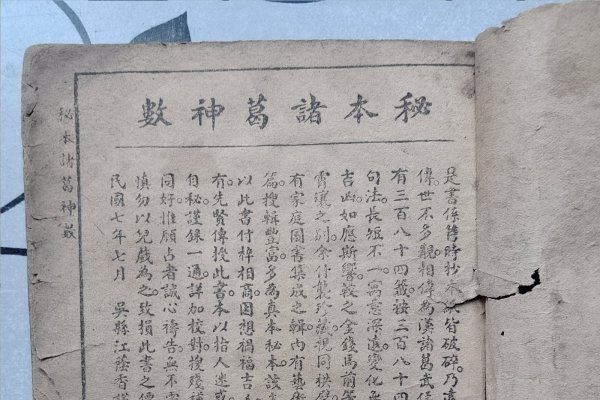 秘本諸葛神數
是書係舊時抄本紙皆破碎乃
傳世不多覩相傳為漢諸葛武侯
有三百八十四籤按三百八十四
句法長短不一寓意深遠變化無
吉凶如應斯響較之金錢馬前
霄壤之別余什襲珍藏視同拱璧
有家庭圖書集成之輯內有藝術
篇搜輯豐富多為真本秘本讀
以此書付梓相商因想禍福吉
有先賢傳授此書本以指人迷
自秘謹錄一通詳加校對搜殘補
同好惟願占者誠心禱告無不靈
慎勿以兒戲為之致損此書之價
民國七年七月 吳縣江蔭香謹
秘本諸葛神數